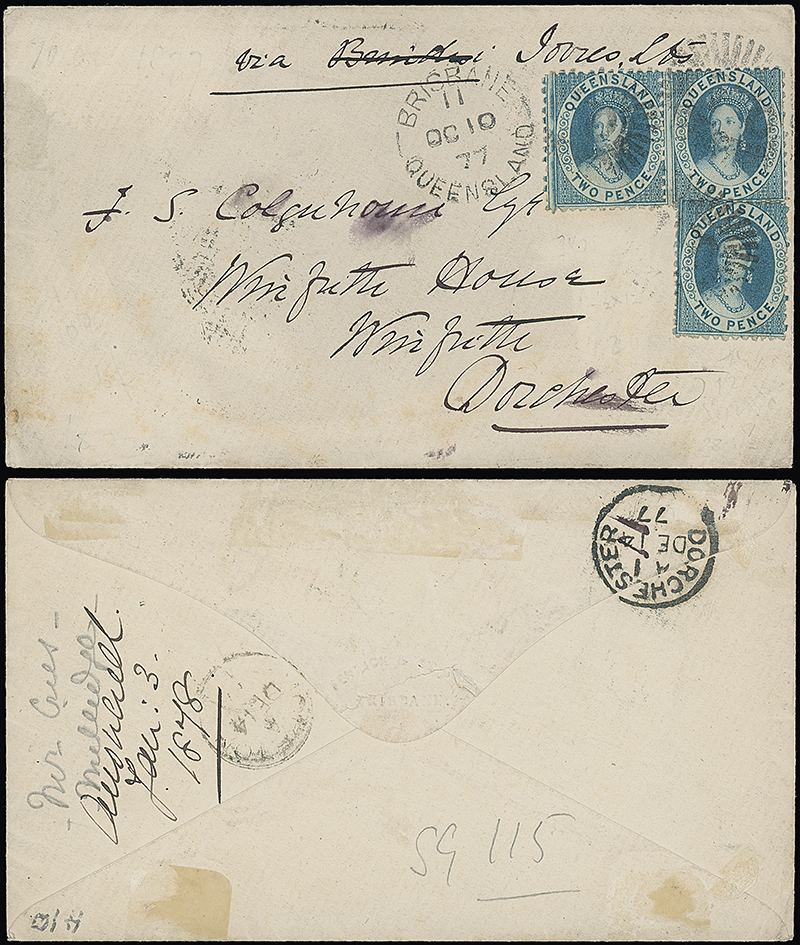 via Brindisi Torres Sts
BRISBANE
11
OC 10
77
QUEENSLAND
QUEENSLAND
TWO PENCE
QUEENSLAND
TWO PENCE
QUEENSLAND
TWO PENCE
J. S. Colquhoun Esqr
Winfrith House
Winfrith
Dorchester
DORCHESTER
A
DE 14
77
Mr
Answered
Jan: 3.
1878
SG 115